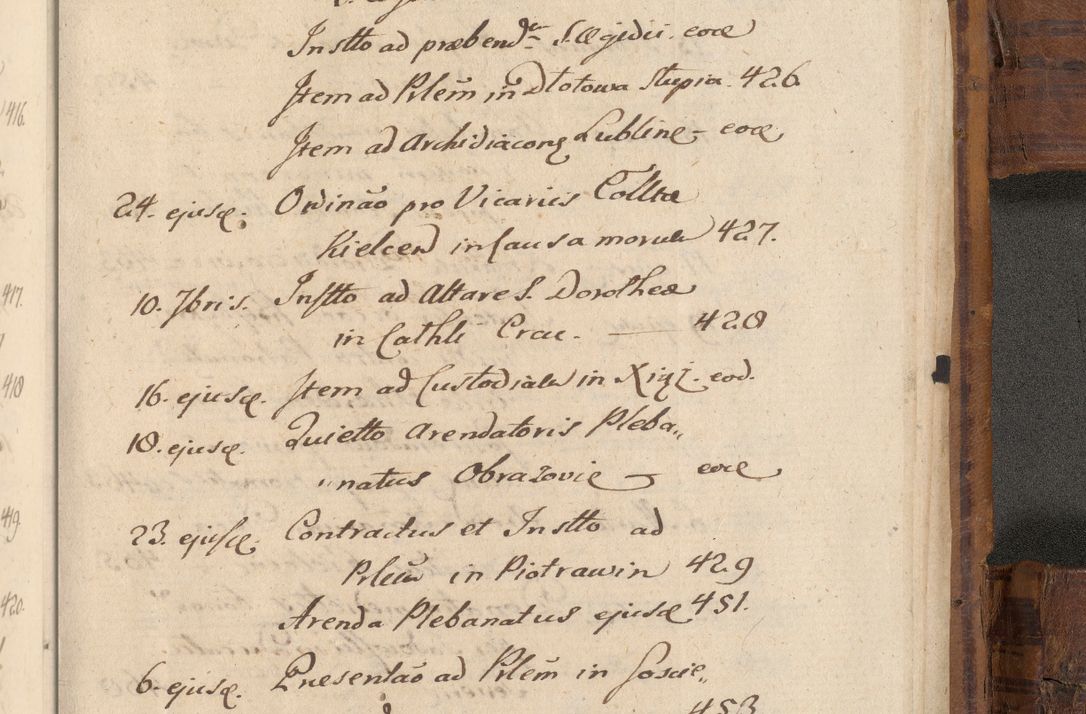 Instto ad præbend. S. Ægidii. eod
Item ad Plem in Dlotowa Slupia. 426
Item ad Archidiacong Lublinę - eod
24. ejusd. Ordinao pro Vicariis Collta
Kielcen in Causa morula 427.
10. 7bris. Instto ad Altare S. Dorotheæ
in Cathli Crac. 428
16. ejusd. Item ad Custodiale in Xiąż. eod.
18. ejusd. Quietto Arendatoris Pleba,,
,,natus Obrazovie eod
23. ejusd. Contractus et Instto ad
Plem in Piotrawin 429
Arenda Plebanatus ejusd 451.
6. ejusd. Præsentao ad Plem in Goscie,,
453
416.
417.
418
419.
420.